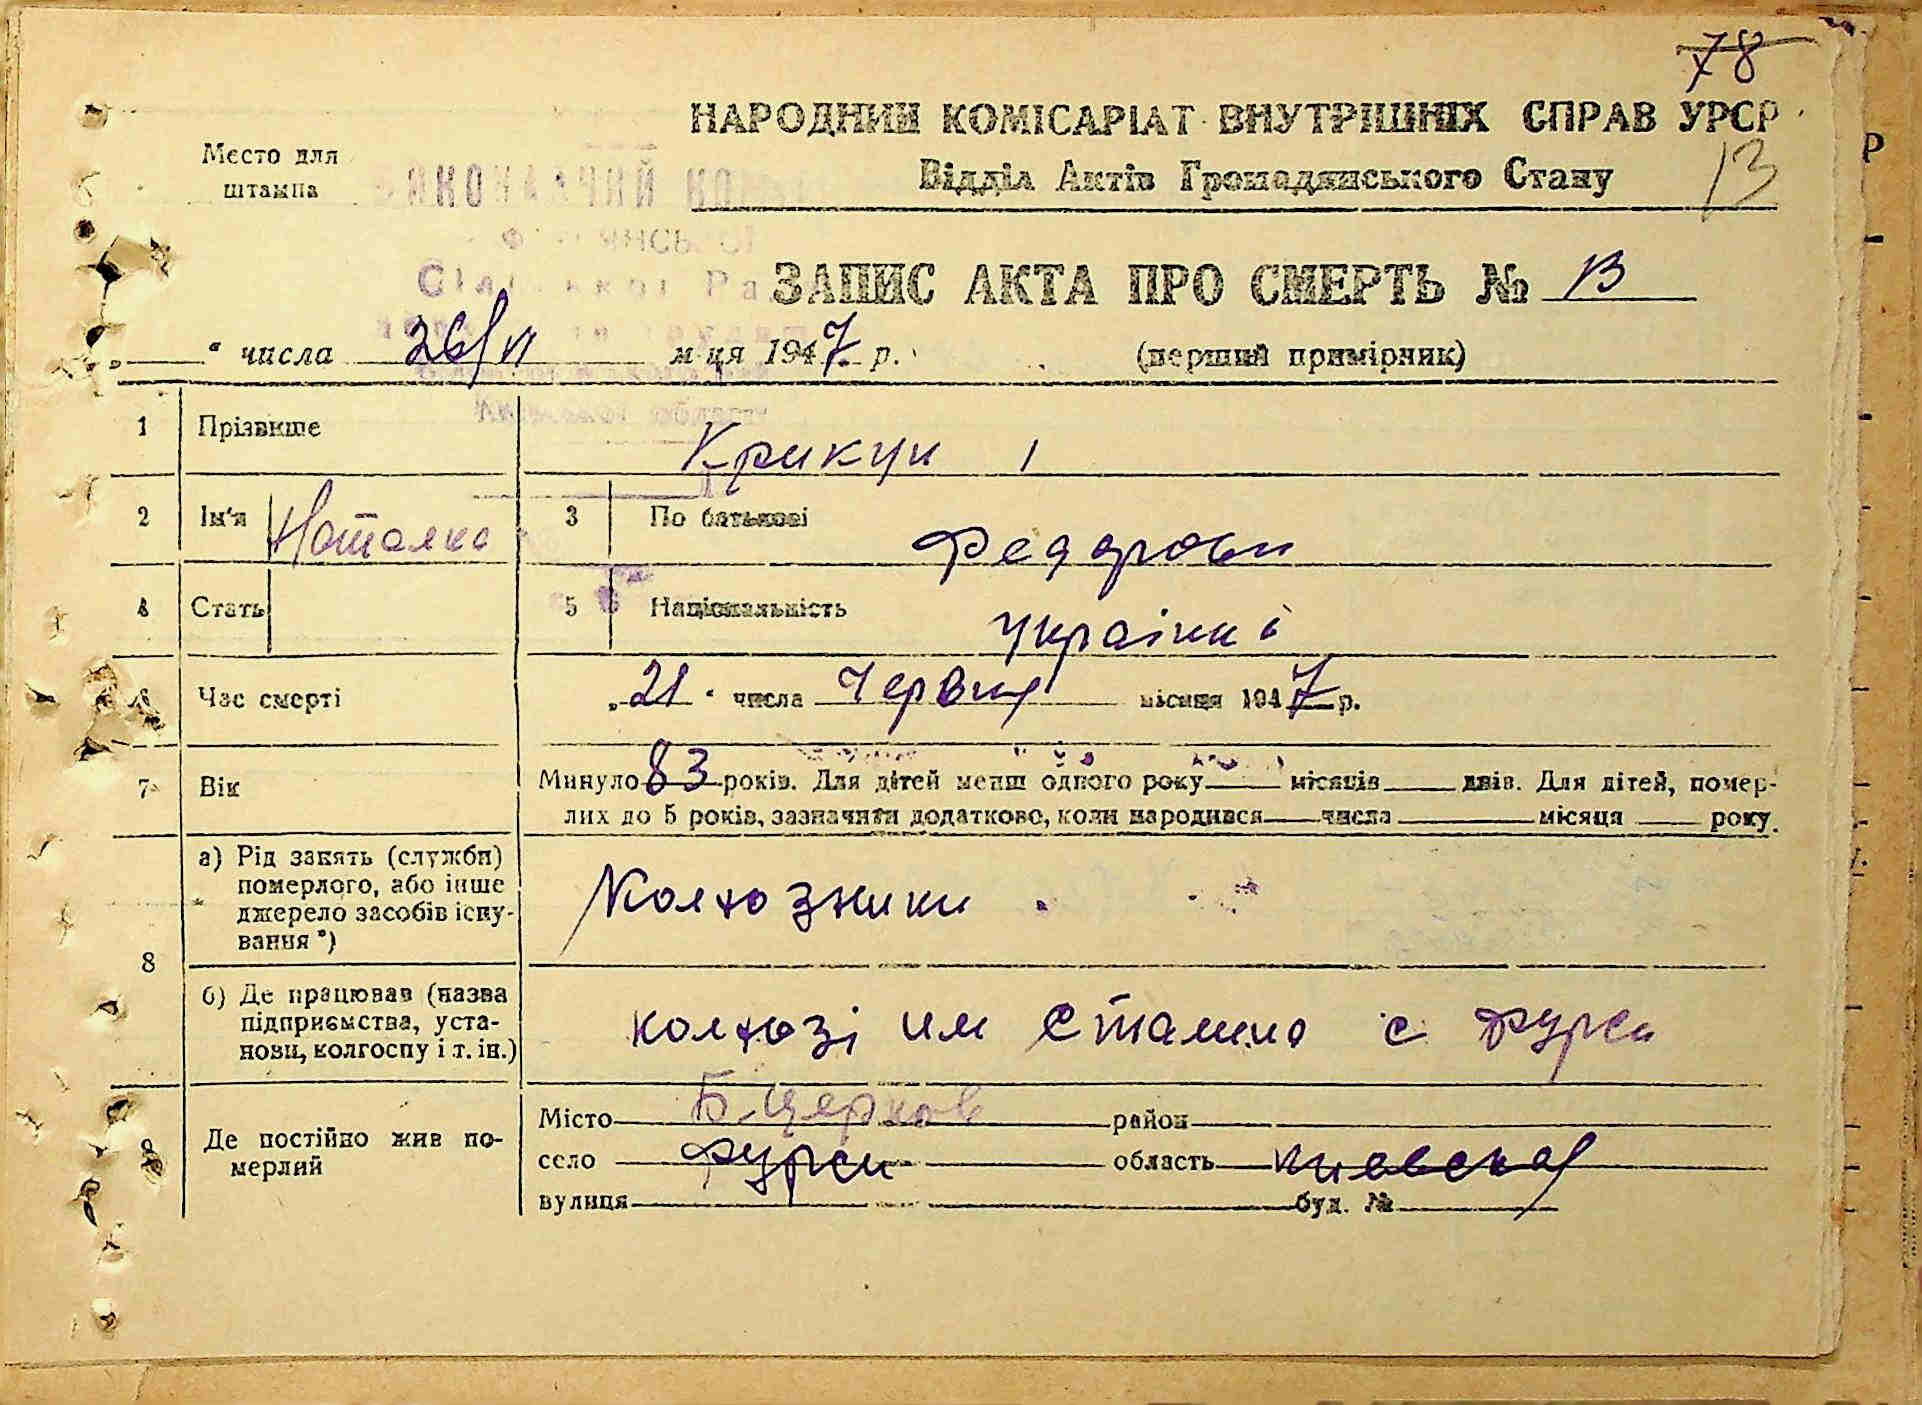 78
НАРОДНИЙ КОМІСАРІАТ ВНУТРІШНІХ СПРАВ УРСР
Место для штампа
Відділ Актів Громадянського Стану
13
ЗАПИС АКТА ПРО СМЕРТЬ № 13
„ “ числа 26/VI м-ця 1947 р. (перший примірник)
1 Прізвище Крикун
2 Ім'я Наталка 3 По батькові Федоровн
4 Стать 5 Національність Українка
6 Час смерті „21“ числа Червня місяця 1947 р.
7 Вік Минуло 83 років. Для дітей менш одного року місяців днів. Для дітей, помер-
лих до 5 років, зазначити додатково, коли народився числа місяця року.
8 а) Рід занять (служби) померлого, або інше джерело засобів існу-вання *) Колхозники
б) Де працював (назва підприємства, уста-нови, колгоспу і т. ін.) колхозі им Сталина с Фурси
9 Де постійно жив по-мерлий Місто Б-Церков район
село Фурси область Киевская
вулиця буд. №